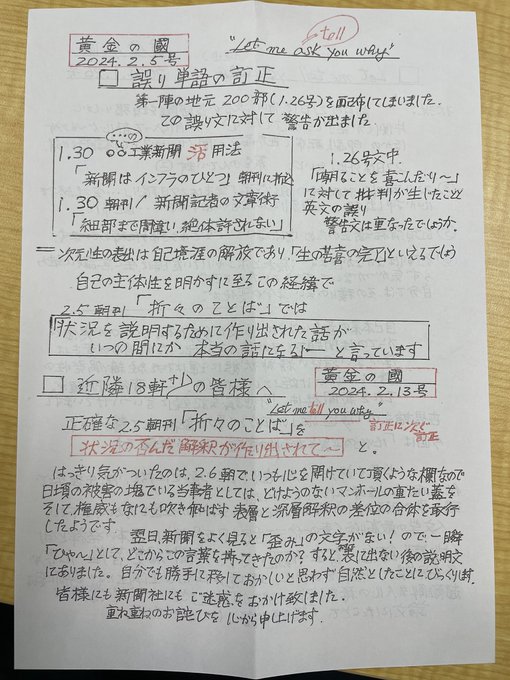 tell
黄金の國
2024.2.5号
"Let me ask you why"
□ 誤り単語の訂正
第一陣の地元200部(1.26号)を配布してしまいました.
この誤り文に対して 警告が出ました
1.30 ○○工業新聞 活用法
「新聞はインフラのひとつ」朝刊に折込
1.30 朝刊/ 新聞記者の文章術
「細部まで間違い、絶体許されない」
1.26号文中.
「鳴ることを喜こんだり〜」
に対して批判が生じたことと
英文の誤り
警告文は重なったでしょうか.
= 次元性の表出は自己境涯の解放であり、「生の苦喜の完了」といえるでしょう
自己の主体性を明かすに至るこの経緯で
2.5朝刊「折々のことば」では
「状況を説明するために作り出された話が
いつの間にか 本当の話になる」ー と言っています
□ 近隣18軒の皆様へ
黄金の國
2024.2.13号
"Let me tell you why"
正確な2.5朝刊「折々のことば」を
訂正に次ぐ訂正
状況の歪んだ解釈が作り出されて〜
と。
はっきり気がついたのは、2.6朝で、いつも心を開けていて頂くような欄なので
日頃の被害の塊でいる当事者としては、どけようのないマンホールの重たい蓋を
そして、権威もなにも吹き飛ばす 表層と深層解釈の差位の合体を敢行
したようです
翌日、新聞をよく見ると「歪み」の文字がない!ので、一瞬
「ひゃ〜」として、どこからこの言葉を持ってきたのか? すると、裏に出ない後の説明文
にありました。自分でも勝手に移しておかしいと思わず自然としたことにびっくり!!
皆様にも新聞社にも ご迷惑をおかけ致しました.
重ね重ねのお詫びを 心から申し上げます.